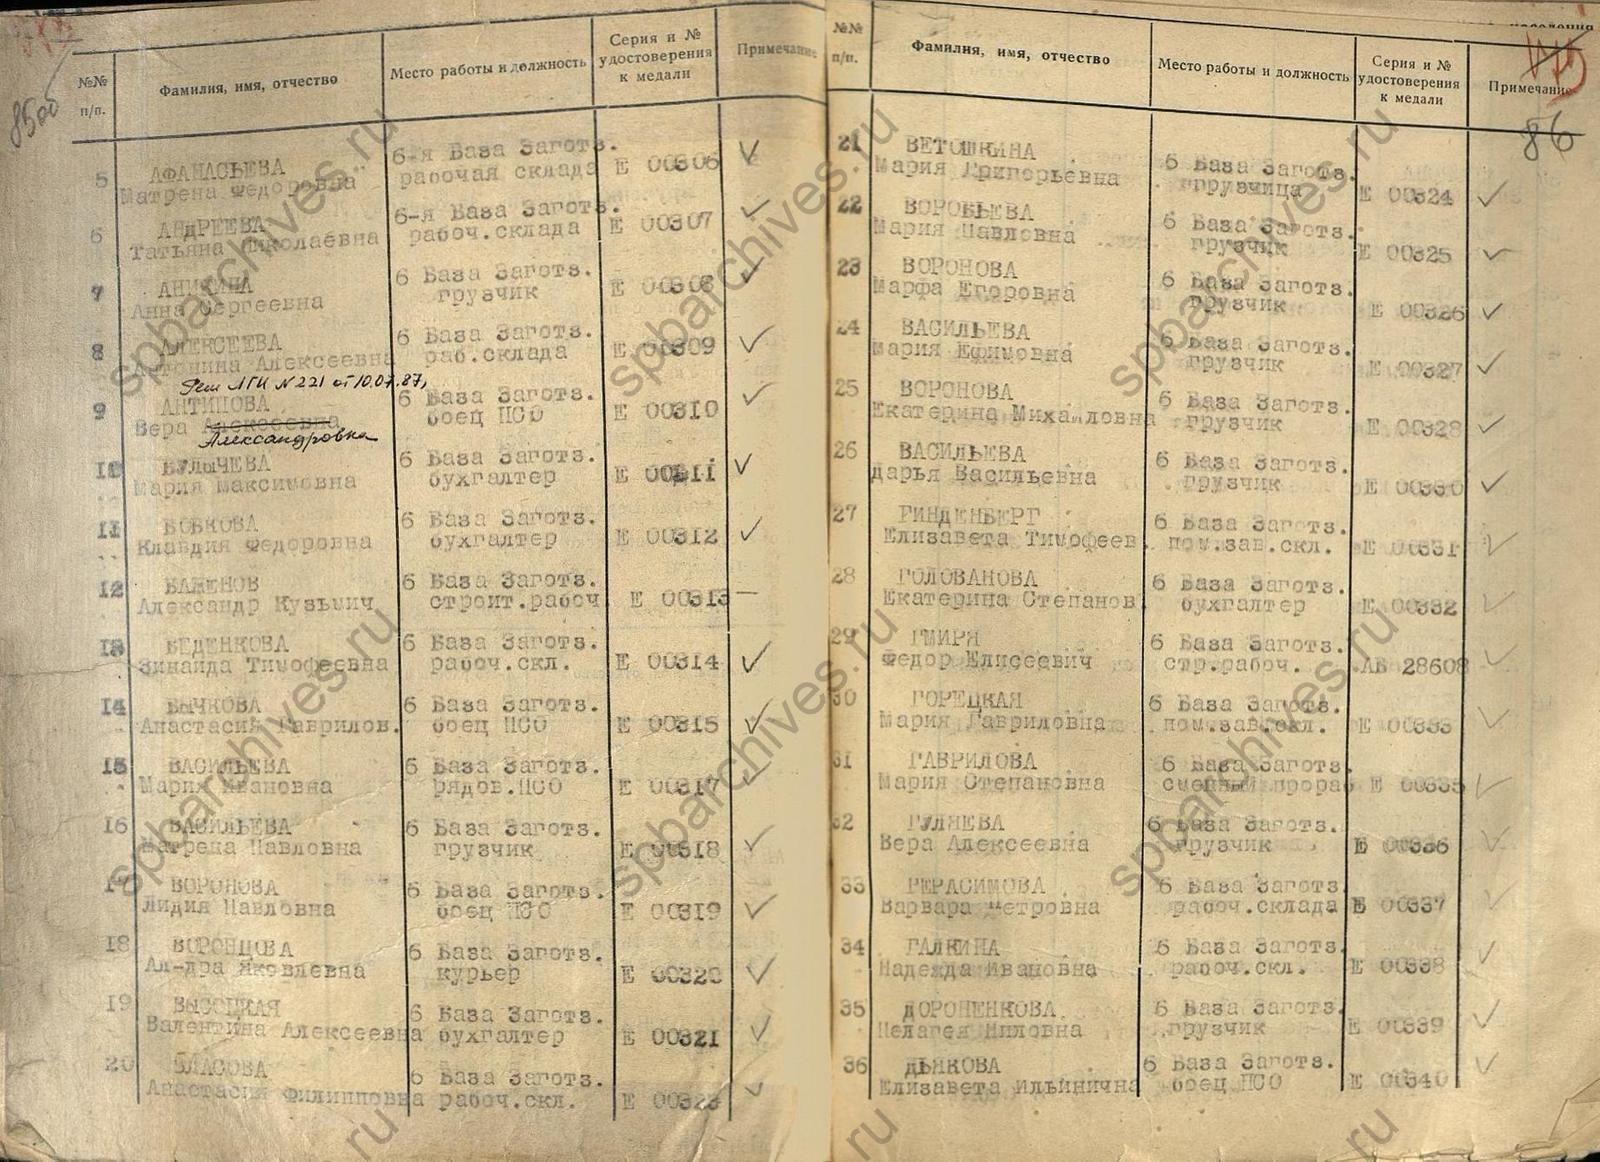 №№ п/п.
Фамилия, имя, отчество
Место работы и должность
Серия и № удостоверения к медали
Примечание
85об
5 АФАНАСЬЕВА 6-я База Заготз.
Матрена Федоровна рабочая склада Е 00306
6 АНДРЕЕВА 6-я База Заготз.
Татьяна Николаевна рабоч.склада Е 00307
7 АНИКИНА 6 База Заготз.
Анна Сергеевна грузчик Е 00308
8 АЛЕКСЕЕВА 6 База Заготз.
Антонина Алексеевна раб.склада Е 00309
Реш ЛГИ N 221 от 10.07.87,
9 АНТИПОВА 6 База Заготз.
Вера Алексеевна боец ПСО Е 00310
Александровна
10 БУЛЫЧЕВА 6 База Заготз.
Мария Максимовна бухгалтер Е 00311
11 БОБКОВА 6 База Заготз.
Клавдия Федоровна бухгалтер Е 00312
12 БАЖЕНОВ 6 База Заготз.
Александр Кузьмич строит.рабоч. Е 00313 —
13 БЕДЕНКОВА 6 База Заготз.
Зинаида Тимофеевна рабоч.скл. Е 00314
14 БЫЧКОВА 6 База Заготз.
Анастасия Гаврилов. боец ПСО Е 00315
15 ВАСИЛЬЕВА 6 База Заготз.
Мария Ивановна рядов.ПСО Е 00317
16 ВАСИЛЬЕВА 6 База Заготз.
Матрена Павловна грузчик Е 00318
17 ВОРОНОВА 6 База Заготз.
Лидия Павловна боец ПСО Е 00319
18 ВОРОНЦОВА 6 База Заготз.
Ал-дра Яковлевна курьер Е 00320
19 ВЫСОЦКАЯ 6 База Заготз.
Валентина Алексеевна бухгалтер Е 00321
20 ВЛАСОВА 6 База Заготз.
Анастасия Филипповна рабоч.скл. Е 00323
№№ п/п.
Фамилия, имя, отчество
Место работы и должность
Серия и № удостоверения к медали
Примечание
86
21 ВЕТОШКИНА 6 База Заготз.
Мария Григорьевна грузчица Е 00324
22 ВОРОБЬЕВА 6 База Заготз.
Мария Павловна грузчик Е 00325
23 ВОРОНОВА 6 База Заготз.
Марфа Егоровна грузчик Е 00326
24 ВАСИЛЬЕВА 6 База Заготз.
Мария Ефимовна грузчик Е 00327
25 ВОРОНОВА 6 База Заготз.
Екатерина Михайловна грузчик Е 00328
26 ВАСИЛЬЕВА 6 База Заготз.
Дарья Васильевна грузчик Е 00330
27 ГИНДЕНБЕРГ 6 База Заготз.
Елизавета Тимофеев. пом.зав.скл. Е 00331
28 ГОЛОВАНОВА 6 База Заготз.
Екатерина Степанов. бухгалтер Е 00332
29 ГМИРЯ 6 База Заготз.
Федор Елисеевич стр.рабоч. АБ 28608
30 ГОРЕЦКАЯ 6 База Заготз.
Мария Гавриловна пом.зав.скл. Е 00333
31 ГАВРИЛОВА 6 База Заготз.
Мария Степановна сменный прораб Е 00335
32 ГУЛЯЕВА 6 База Заготз.
Вера Алексеевна грузчик Е 00336
33 ГЕРАСИМОВА 6 База Заготз.
Варвара Петровна рабоч.склада Е 00337
34 ГАЛКИНА 6 База Заготз.
Надежда Ивановна рабоч.скл. Е 00338
35 ДОРОНЕНКОВА 6 База Заготз.
Пелагея Ниловна грузчик Е 00339
36 ДЬЯКОВА 6 База Заготз.
Елизавета Ильинична боец ПСО Е 00340
spbarchives.ru